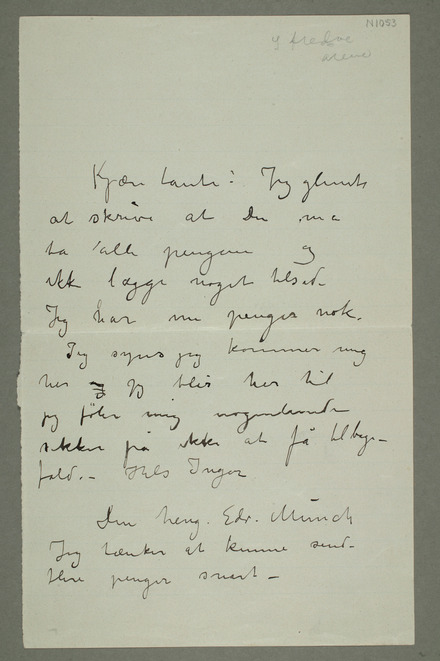 N1053
Kjære tante! Jeg glemte
at skrive at Du må
ta alle pengene og
ikke lægge noget tilside
Jeg har nu penger nok.
Jeg synes jeg kommer mig
her og jeg blir her til
jeg føler mig nogenlunde
sikker på ikke at få tilbage-
fald. – Hils Inger
Din heng. Edv. Munch
Jeg tænker at kunne sende
flere penger snart –